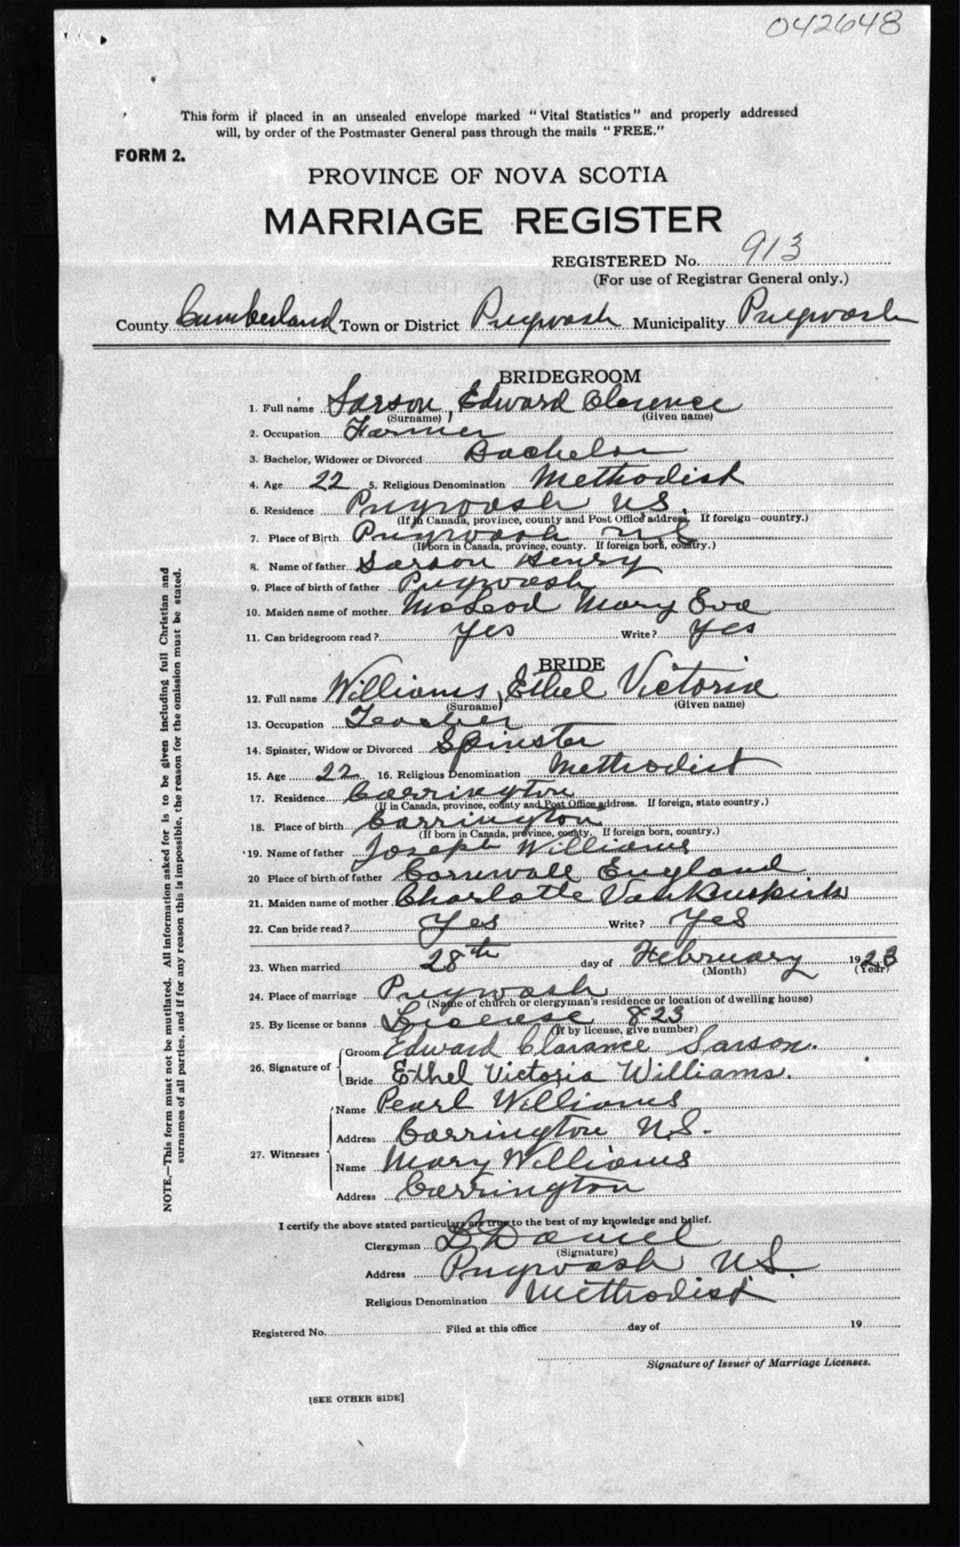 042648
This form if placed in an unsealed envelope marked "Vital Statistics" and properly addressed
will, by order of the Postmaster General pass through the mails "FREE."
FORM 2.
PROVINCE OF NOVA SCOTIA
MARRIAGE REGISTER
REGISTERED No. 913
(For use of Registrar General only.)
County Cumberland Town or District Pugwash Municipality Pugwash
BRIDEGROOM
1. Full name Sarson, Edward Clarence
(Surname) (Given name)
2. Occupation Farmer
3. Bachelor, Widower or Divorced Bachelor
4. Age 22 5. Religious Denomination Methodist
6. Residence Pugwash N.S.
(If in Canada, province, county and Post Office address. If foreign—country.)
7. Place of Birth Pugwash N.S.
(If born in Canada, province, county. If foreign born, country.)
8. Name of father Sarson Henry
9. Place of birth of father Pugwash
10. Maiden name of mother McLeod Mary Eva
11. Can bridegroom read? Yes Write? Yes
BRIDE
12. Full name Williams, Ethel Victoria
(Surname) (Given name)
13. Occupation Teacher
14. Spinster, Widow or Divorced Spinster
15. Age 22 16. Religious Denomination Methodist
17. Residence Carrington
(If in Canada, province, county and Post Office address. If foreign, state country.)
18. Place of birth Carrington
(If born in Canada, province, county. If foreign born, country.)
19. Name of father Joseph Williams
20 Place of birth of father Cornwall England
21. Maiden name of mother Charlotte VanBuskirk
22. Can bride read? Yes Write? Yes
23. When married 28th day of February 1923
(Month) (Year)
24. Place of marriage Pugwash
(Name of church or clergyman's residence or location of dwelling house)
25. By license or banns License 823
(If by license, give number)
26. Signature of Groom Edward Clarance Sarson.
Bride Ethel Victoria Williams.
27. Witnesses Name Pearl Williams
Address Carrington N.S.
Name Mary Williams
Address Carrington
I certify the above stated particulars are true to the best of my knowledge and belief.
Clergyman Daniel
(Signature)
Address Pugwash N.S.
Religious Denomination Methodist
Registered No. Filed at this office day of 19
Signature of Issuer of Marriage Licenses.
[SEE OTHER SIDE]
NOTE,—This form must not be mutilated. All information asked for is to be given including full Christian and
surnames of all parties, and if for any reason this is impossible, the reason for the omission must be stated.